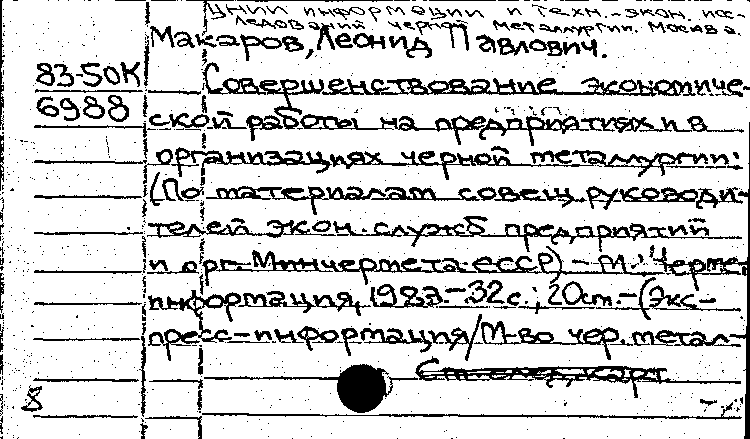 ЦНИИ информации и техн.-экон. исс-
ледований черной металлургии. Москва.
Макаров, Леонид Павлович.
83-50К Совершенствование экономиче-
6988 ской работы на предприятиях и в
организациях черной металлургии:
(По материалам совещ. руководи-
телей экон. служб предприятий
и орг. Минчермета СССР) - М.: Чермет
информация, 1983.-32 с.; 20 см.-(Экс-
пресс-информация/М-во чер. метал-
См. след. карт.
8